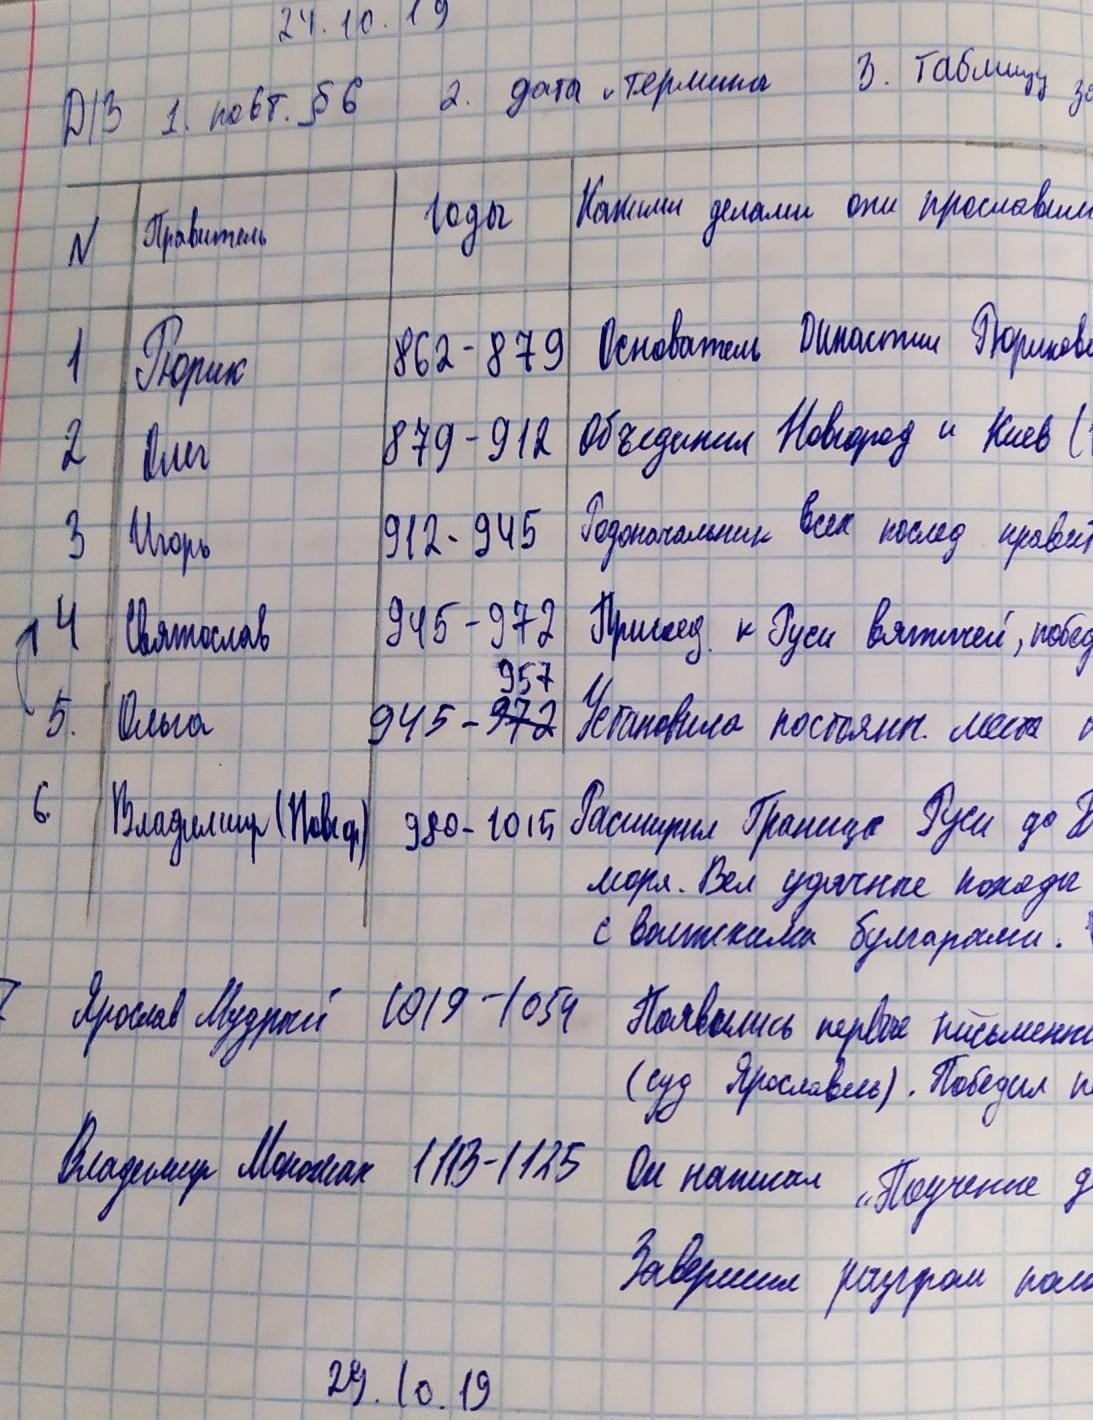 24.10.19
Д/З 1. повт. §6 2. дата и термины 3. Таблицу
N Правитель Годы Какими делами они прославил
1 Рюрик 862-879 Основатель Династии Рюрикови
2 Олег 879-912 Объединил Новгород и Киев (
3 Игорь 912-945 Родоначальник всех послед правит
4 Святослав 945-972 Присоед. к Руси вятичей, побед
957
5. Ольга 945-972 Установила постоянн. места
6. Владимир (Новгор) 980-1015 Расширил Границе Руси до
моря. Вел удачные походы
с волжскими булгарами.
7 Ярослав Мудрый 1019-1054 Появились первые письменны
(суд Ярославль). Победил
Владимир Мономах 1113-1125 Он написал „Поучение д
Завершил разгром поло
29.10.19